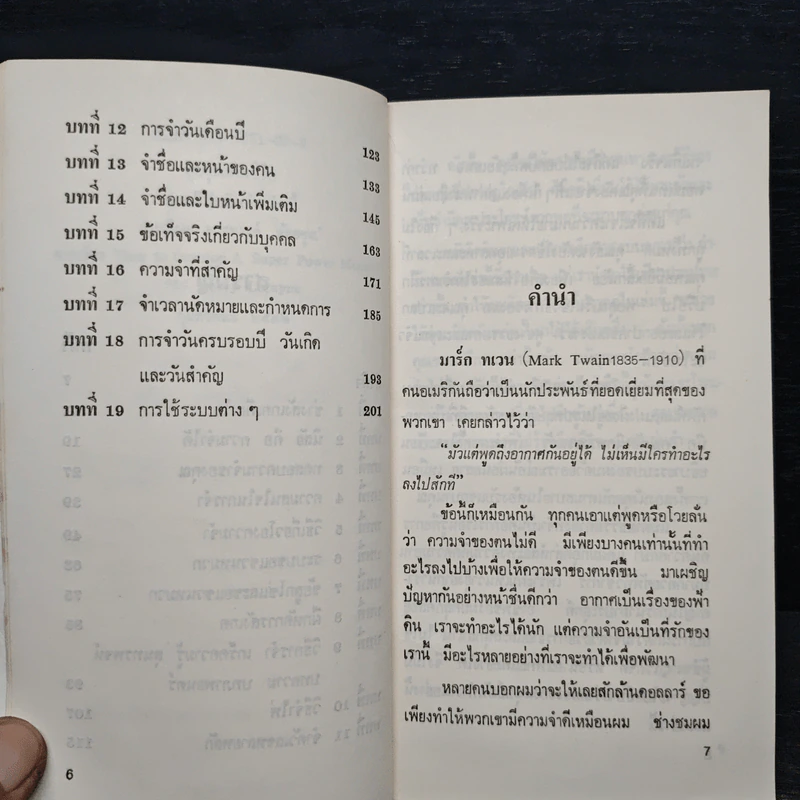 บทที่ 12 การจำวันเดือนปี 123
บทที่ 13 จำชื่อและหน้าของคน 133
บทที่ 14 จำชื่อและใบหน้าเพิ่มเติม 145
บทที่ 15 ข้อเท็จจริงเกี่ยวกับบุคคล 163
บทที่ 16 ความจำที่สำคัญ 171
บทที่ 17 จำเวลานัดหมายและกำหนดการ 185
บทที่ 18 การจำวันครบรอบปี วันเกิด
และวันสำคัญ 193
บทที่ 19 การใช้ระบบต่าง ๆ 201
6
คำนำ
มาร์ก ทเวน (Mark Twain1835–1910) ที่
คนอเมริกันถือว่าเป็นนักประพันธ์ที่ยอดเยี่ยมที่สุดของ
พวกเขา เคยกล่าวไว้ว่า
"มัวแต่พูดถึงอากาศกันอยู่ได้ ไม่เห็นมีใครทำอะไร
ลงไปสักที"
ข้อนี้ก็เหมือนกัน ทุกคนเอาแต่พูดหรือโวยลั่น
ว่า ความจำของตนไม่ดี มีเพียงบางคนเท่านั้นที่ทำ
อะไรลงไปบ้างเพื่อให้ความจำของตนดีขึ้น มาเผชิญ
ปัญหากันอย่างหน้าชื่นดีกว่า อากาศเป็นเรื่องของฟ้า
ดิน เราจะทำอะไรได้นัก แต่ความจำอันเป็นที่รักของ
เรานี้ มีอะไรหลายอย่างที่เราจะทำได้เพื่อพัฒนา
หลายคนบอกผมว่าจะให้เลยสักล้านดอลลาร์ ขอ
เพียงทำให้พวกเขามีความจำดีเหมือนผม ช่างชมผม
7